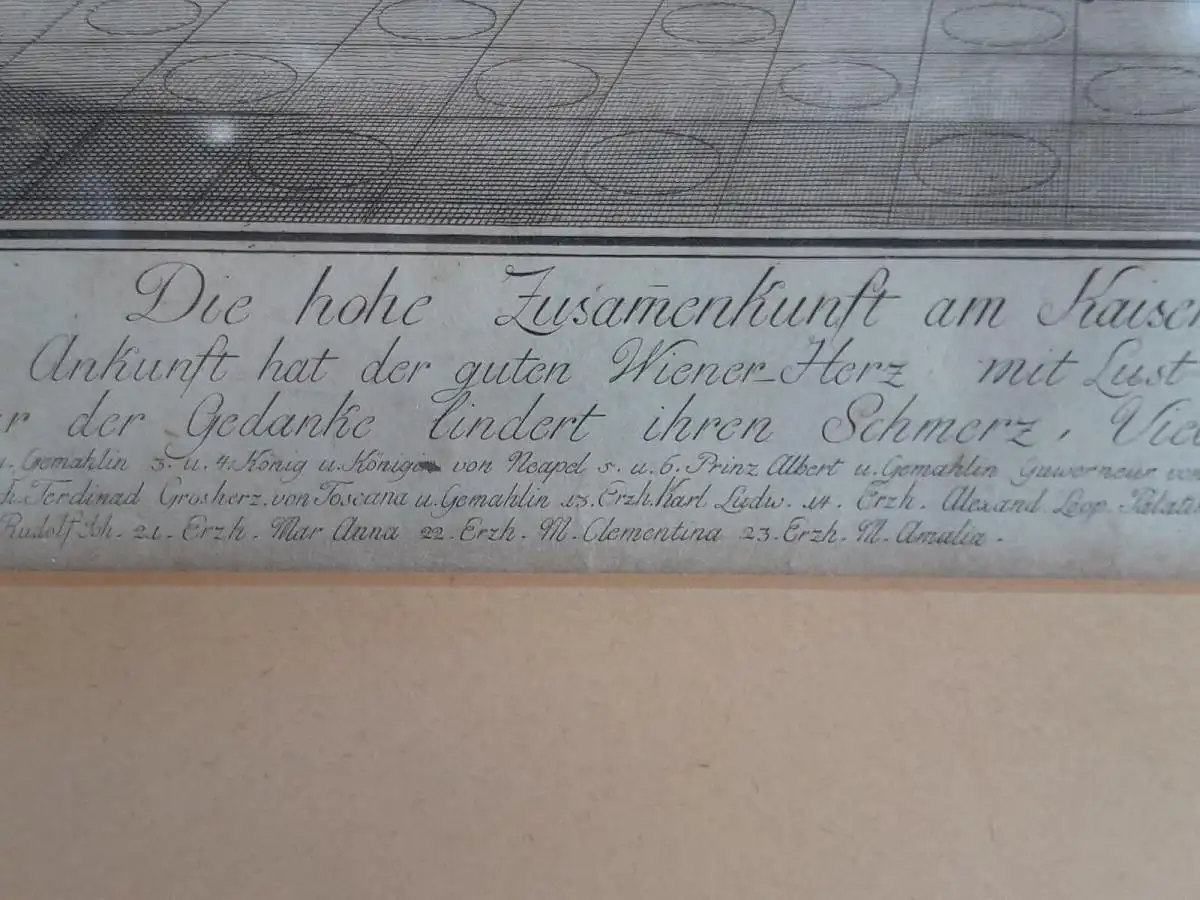 Die hohe Zusam̅enkunft am
Ankunft hat der guten Wiener-Herz mit Lust
der Gedanke lindert ihren Schmerz,
Gemahlin 3. u. 4. König u. Könige von Neapel 5. u. 6. Prinz Albert u. Gemahlin Guwerneur
Ferdinad Grosherz. von Toscana u. Gemahlin 13. Erzh. Karl Ludw. 14. Erzh. Alexand. Leop.
Rudolf Ioh. 21. Erzh. Mar Anna 22. Erzh. M. Clementina 23. Erzh. M. Amalia.